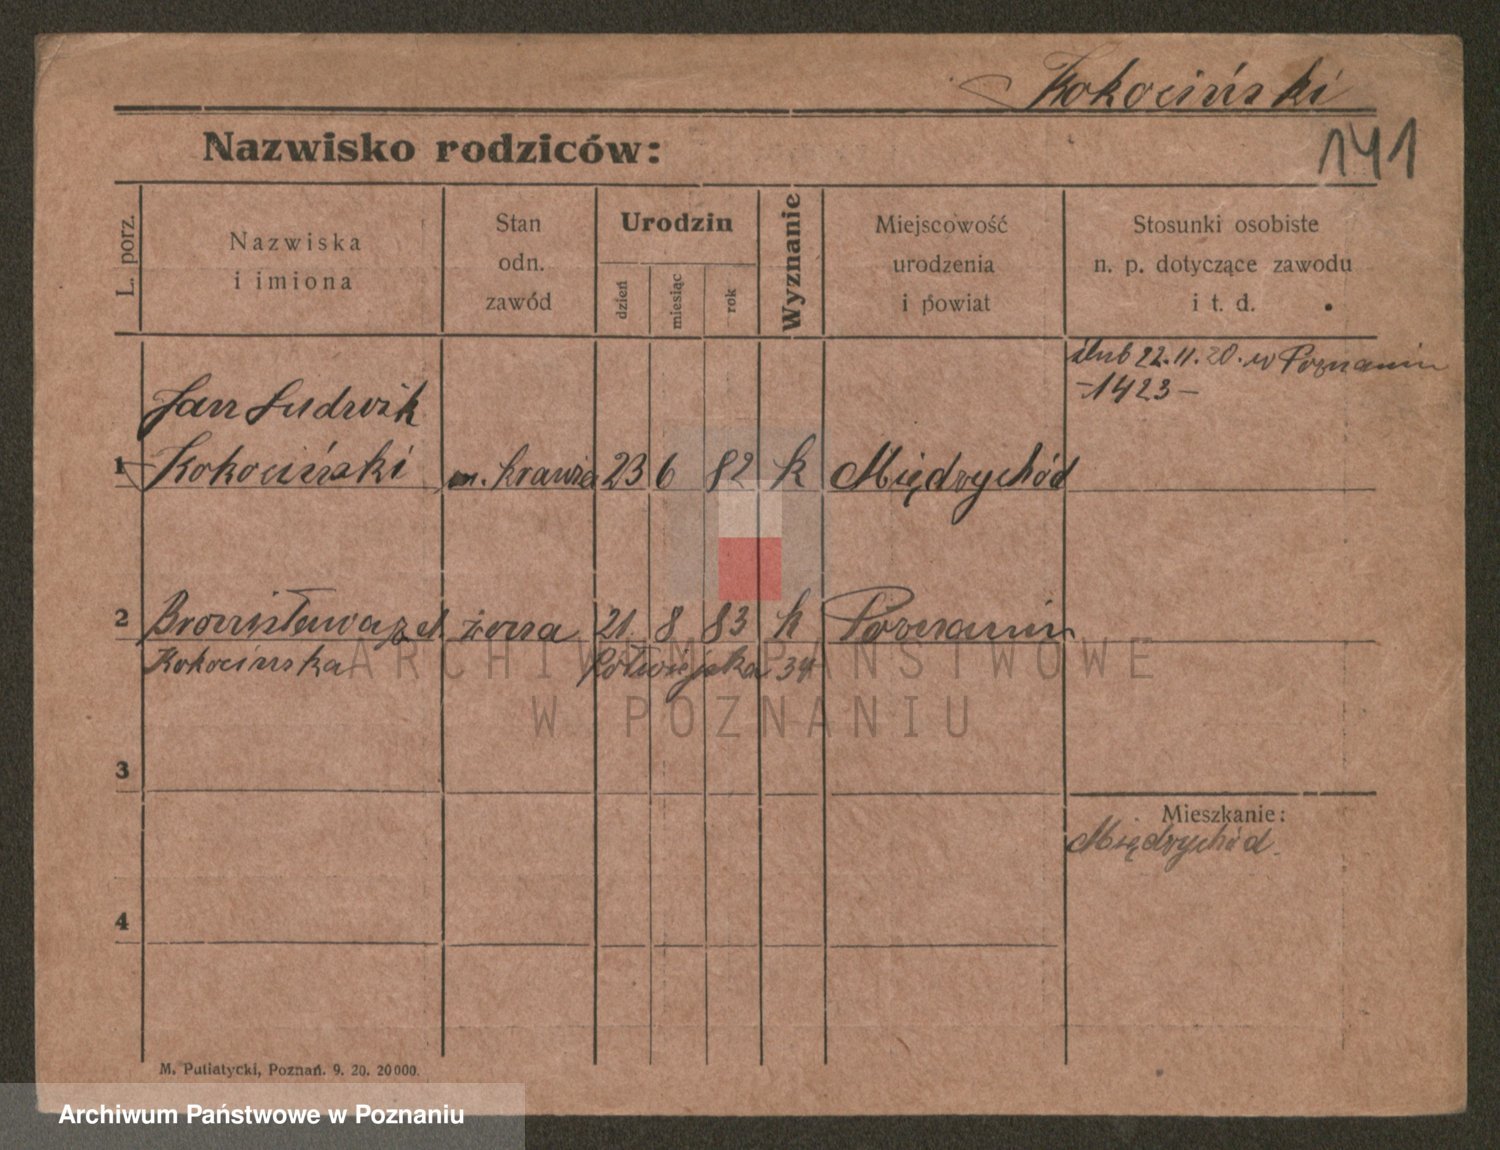 Kokociński
Nazwisko rodziców:
141
L. porz.
Nazwiska
i imiona
Stan
odn.
zawód
Urodzin
dzień
miesiąc
rok
Wyznanie
Miejscowość
urodzenia
i powiat
Stosunki osobiste
n. p. dotyczące zawodu
i t. d.
ślub 22.11.20. w Poznaniu
-1423-
Jan Ludwik
1 Kokociński m. krawiec 23 6 82 k Międzychód
2 Bronisława żona 21. 8 83 k Poznaniu
Kokocińska Półwiejska 34
ARCHIWUM PAŃSTWOWE
W POZNANIU
3
Mieszkanie:
Międzychód.
4
M. Putiatycki, Poznań. 9. 20. 20000.
Archiwum Państwowe w Poznaniu